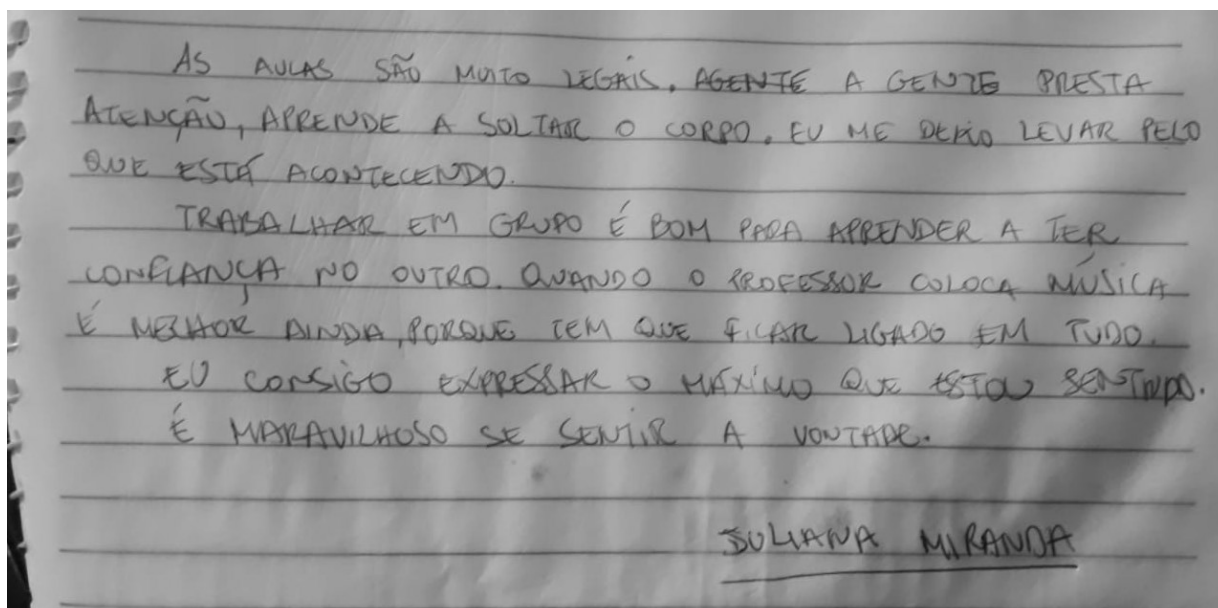 AS AULAS SÃO MUITO LEGAIS. AGENTE A GENTE PRESTA
ATENÇÃO, APRENDE A SOLTAR O CORPO. EU ME DEIXO LEVAR PELO
QUE ESTÁ ACONTECENDO.
TRABALHAR EM GRUPO É BOM PARA APRENDER A TER
CONFIANÇA NO OUTRO. QUANDO O PROFESSOR COLOCA MÚSICA
É MELHOR AINDA, PORQUE TEM QUE FICAR LIGADO EM TUDO.
EU CONSIGO EXPRESSAR O MÁXIMO QUE ESTOU SENTINDO.
É MARAVILHOSO SE SENTIR A VONTADE.
JULIANA MIRANDA